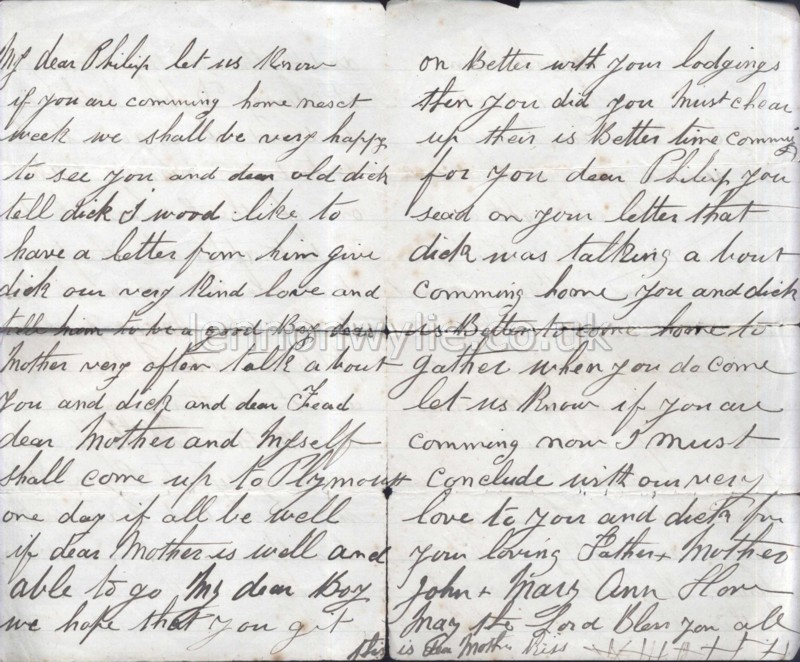 My dear Philip let us know
if you are comming home nesct
week we shall be very happy
to see you and dear old dick
tell dick I wood like to
have a letter from him give
dick our very kind love and
tell him to be a good Boy dear
Mother very often talk a bout
you and dick and dear Fead
dear Mother and Myself
shall come up to Plymouth
one day if all be well
if dear Mother is well and
able to go My dear Boy
we hope that you get
on Better with your lodgings
then you did you Must chear
up their is Better time comming
for you dear Philip you
sead on your letter that
dick was talking a bout
comming home you and dick
is Better to come home to
gather when you do come
let us Know if you are
comming now I must
Conclude with our very
love to you and dick for
your loving Father + Mother
John + Mary Ann
May the Lord Bless you all
this is Dear Mother Kiss
lennonwylie.co.uk